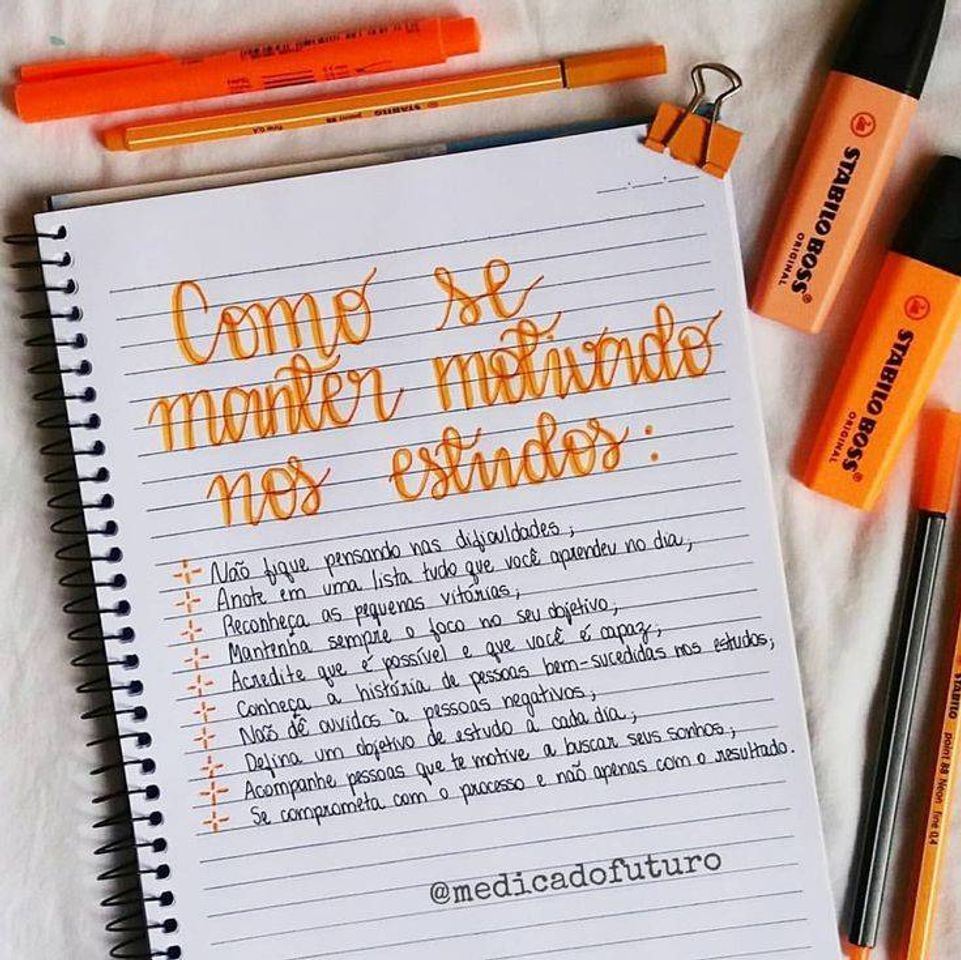 Como se
manter motivado
nos estudos:
Não fique pensando nas dificuldades;
Anote em uma lista tudo que você aprendeu no dia;
Reconheça as pequenas vitórias;
Mantenha sempre o foco no seu objetivo;
Acredite que é possível e que você é capaz;
Conheça a história de pessoas bem-sucedidas nos estudos;
Não dê ouvidos à pessoas negativos;
Defina um objetivo de estudo a cada dia;
Acompanhe pessoas que te motive a buscar seus sonhos;
Se comprometa com o processo e não apenas com o resultado.
@medicadofuturo
STABILO BOSS
ORIGINAL
STABILO BOSS
ORIGINAL
STABILO
point 88
fine 0,4
STABILO
point 88 Neon fine 0,4